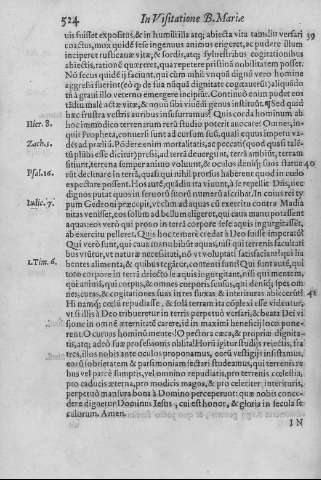 524 In Visitatione B. Mariæ
uis fuisset expositus, & in humili illa atq; abiecta vita famulū versari 39
coactus, mox quidē sese ingenuis animus engeret, ac pudere illum
inciperet rusticanæ vitæ, & sordis, atq; syluestribus cogitationibus
abiectis, rationē quæreret, qua repetere pristinā nobilitatem posset.
Nō secus quidē ij faciunt, qui cùm nihil vnquā dignū vero homine
aggressi fuerint (eò q; de sua nūquā dignitate cogitauerūt) aliquādo
tñ à graui illo veterno emergere incipiūt. Continuò enim pudet eos
tādiu malè actæ vitæ, & nouū sibi viuēdi genus instituūt. ¶ Sed quid
hæc frustra vestris auribus insusurramus? Quis corda hominum ab
Hier. 8. hoc immodico terrenarum rerū studio poterit auocare? Omnes, in-
quit Propheta, conuersi sunt ad cursum suū, quasi equus impetu va-
Zach. 5. dēs ad præliū. Pōdere enim mortalitatis, ac peccati (quod quasi talē-
tū plūbi esse dicitur) pressi, ad terrā deuergunt, terrā ambiūt, terram
sitiunt, terrena semper animo voluunt, & oculos deniq; suos statue- 40
Psal. 16. rūt declinare in terrā, quasi qui nihil prorsus haberent quod in cœlo
expectare possent. Hos autē, qui adeu ita viuunt, à se repellit Deus, nec
dignos putat quos in seruorū suorū numerū ascribat. In cuius rei ty-
Iudic. 7. pum Gedroni præcepit, vt cùm ad aquas cū exercitu contra Madia
nitas venisset, eos solùm ad bellum eligeret, qui caua manu potassent
aquas: eos verò qui proni in terrā corpore sese aquis ingurgitassēt,
ab exercitu pelleret. Quis hoc temerè credet à Deo suisse imperatū?
Qui verò sunt, qui caua manu bibūt aquas, nisi qui terrenis facultati
bus vtūtur, vt naturæ necessitati, nō vt voluptati satisfaciant? qui ha
1. Tim. 6. bentes alimenta, & quibus tegātur, contenti sunt? Qui sunt autē, qui
toto corpore in terrā deiecto se aquis ingurgitant, nisi qui mentem,
qui animū, qui corpus, & omnes corporis sensus, qui deniq; spes om-
nes, curas, & cogitationes suas in res fluxas & interituras abiecerūt? 41
Hi namq; cœlū repudiasse, & solā terram ita cōplexi esse videntur,
vt si illis à Deo tribueretur in terris perpetuò versari, & beata Dei vi
sione in omnē æternitatē carere, id in maximi beneficij loco pone-
rent. O curuas hominū mentes! O pectora cæca, & propriæ dignita-
tis, atq; adeò suæ professionis oblita! Horū igitur studijs reiectis, fra
tres, illos nobis ante oculos proponamus, eorū vestigijs insistamus,
eorū sobrietatem & parsimoniam sectari studeamus, qui terrenis re
bus vel parcè sumptis, vel omnino repudiatis, pro terrenis cœlestia,
pro caducis æterna, pro modicis magna, & pro celeriter interituris,
perpetuò mansura bona à Domino perceperunt: quæ nobis conce-
dere dignetur Dominus Iesus, cui est honor, & gloria in secula se-
culorum. Amen.
IN